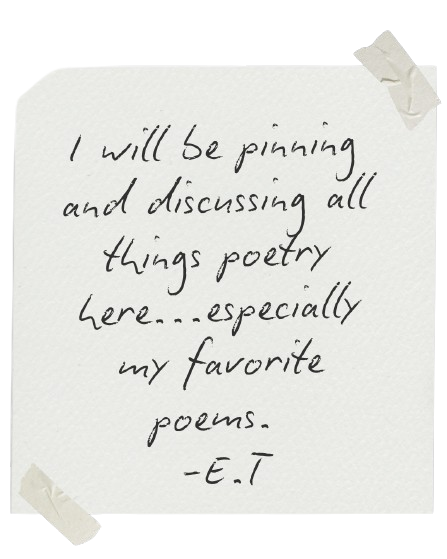 I will be pinning
and discussing all
things poetry
here...especially
my favorite
poems.
-E.T